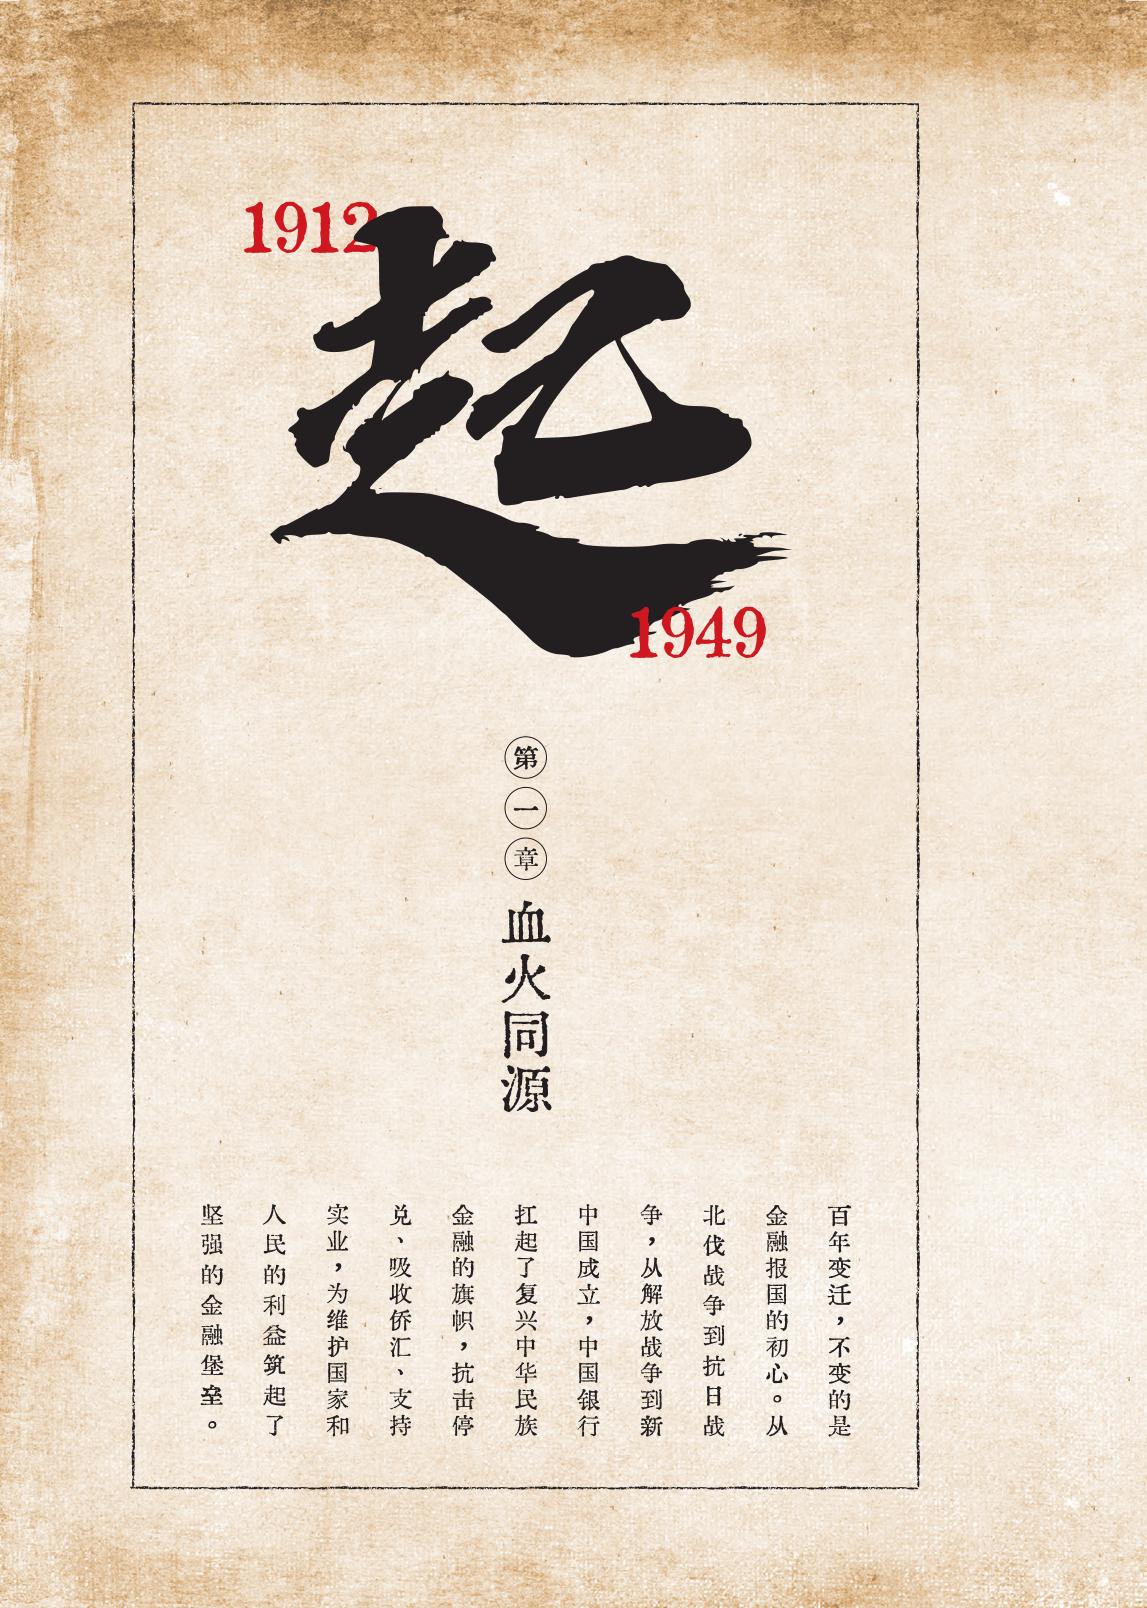 1912
起
1949
第一章
血火同源
百年变迁，不变的是
金融报国的初心。从
北伐战争到抗日战
争，从解放战争到新
中国成立，中国银行
扛起了复兴中华民族
金融的旗帜，抗击停
兑、吸收侨汇、支持
实业，为维护国家和
人民的利益筑起了
坚强的金融堡垒。